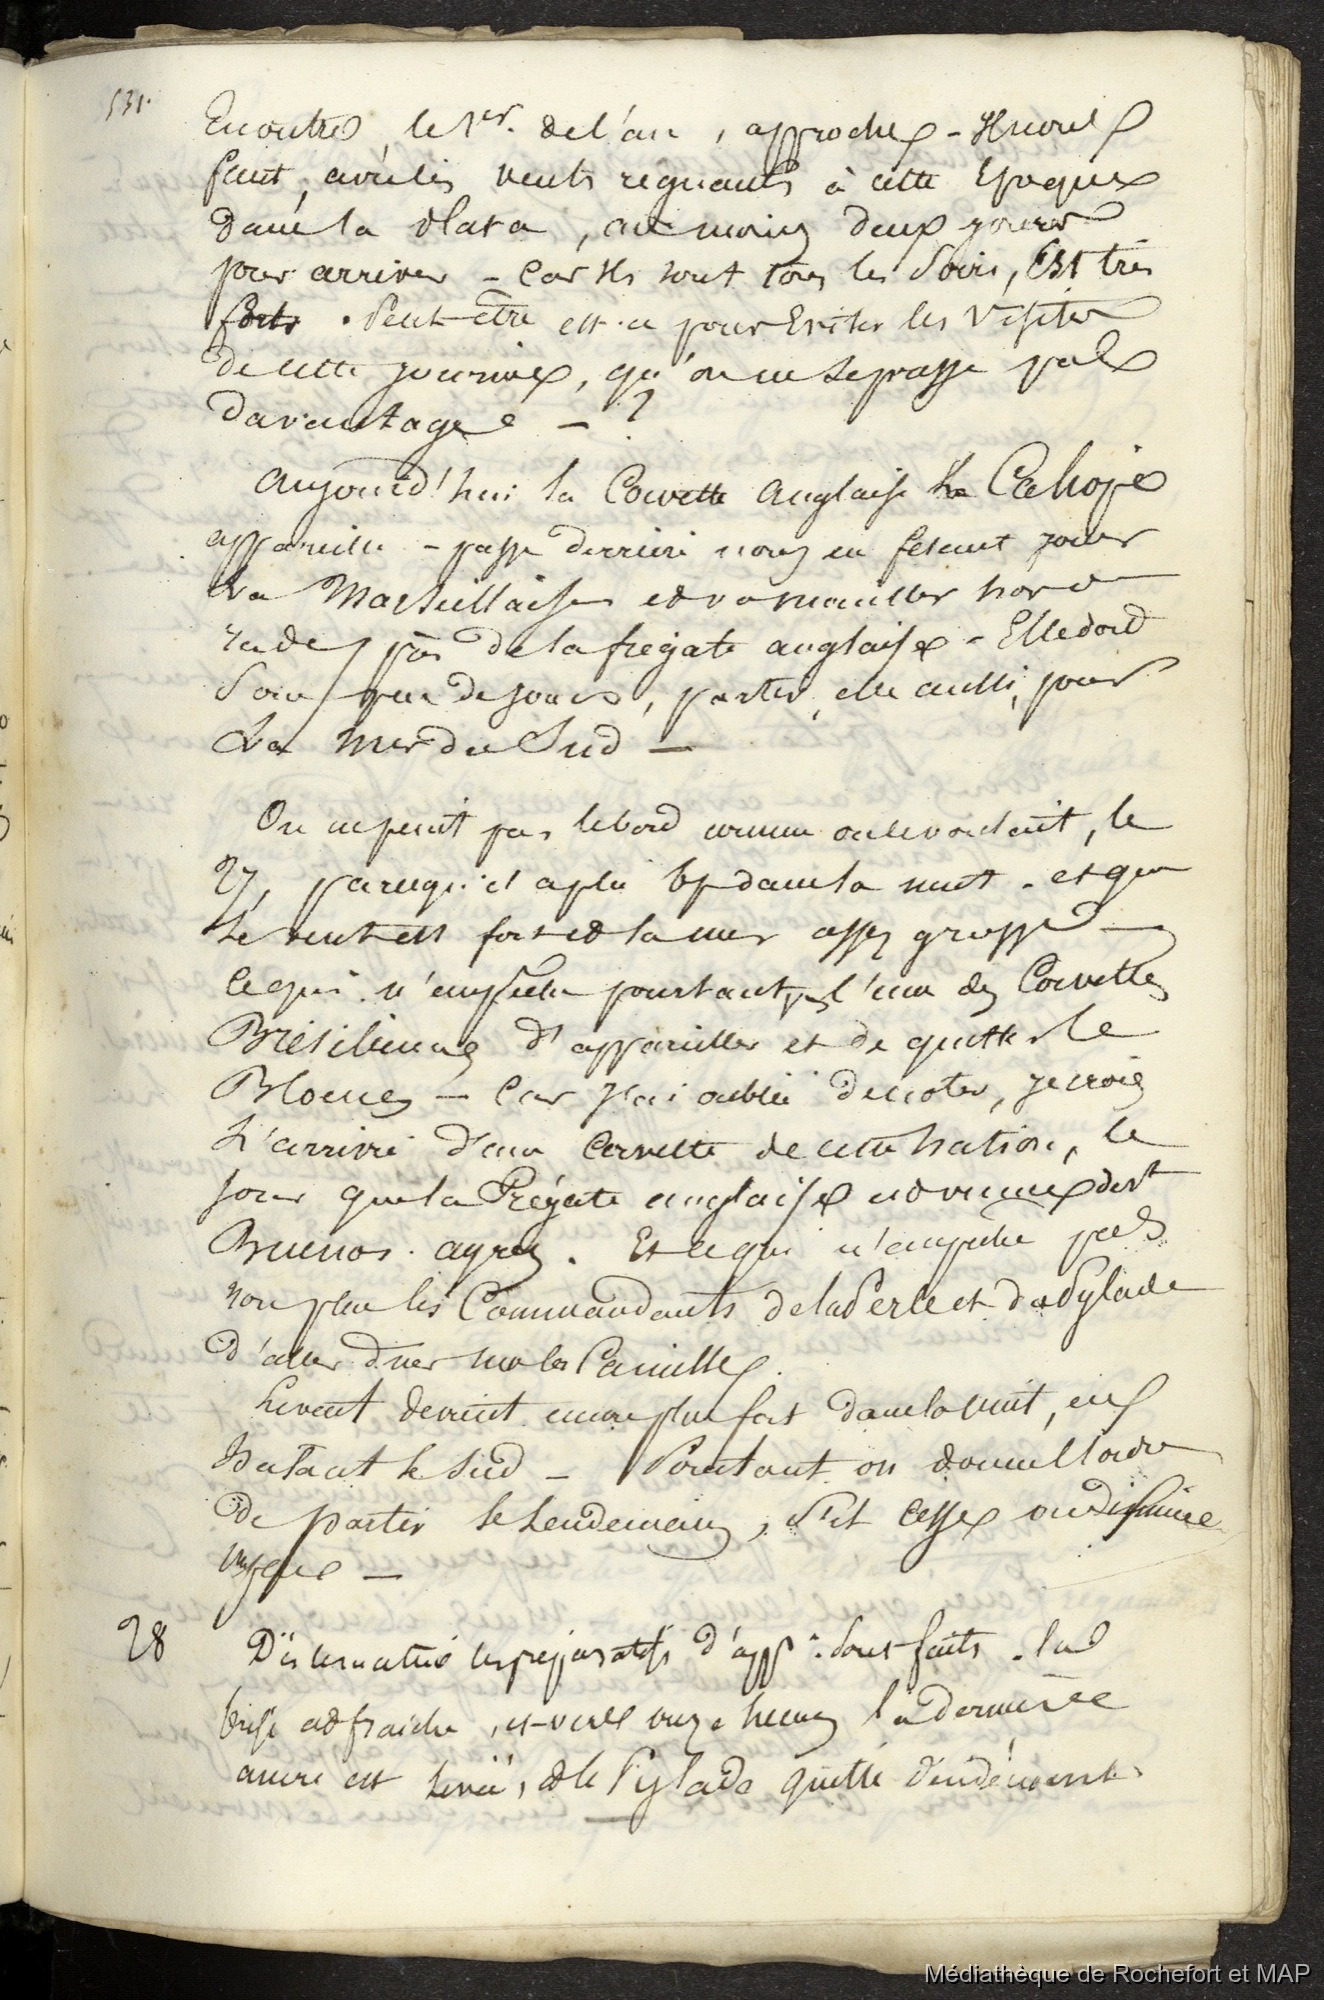 531.
En outre, le 1er. de l'an, approche - Il nous
faut, avec les vents regnants à cette Epoque
dans la Plata, au moins deux jours
pour arriver - Car ils sont tous les Soirs, Est très
forts. Peut-être est-ce pour Eviter les Visites
de cette journée, qu'on ne se presse pas
davantage - ?
Aujourd'hui la Corvette anglaise Calliope
appareille - passe derrière nous en fesant jouer
La Marseillaise et va mouiller hors
rade, près de la frégate anglaise - Elle doit
sous peu de jours, partir, elle aussi, pour
La Mer du Sud -
On ne peint pas le bord comme on le voulait, le
27, parcequ'il a plu bp dans la nuit - et que
Le vent est fort et la mer assez grosse
Ce qui n'empêche pourtant pas l'une des Corvettes
Brésiliennes d'appareiller et de quitter le
Blocus - Car j'ai oublié de noter, je crois
L'arrivée d'une Corvette de cette nation, le
jour que la Frégate anglaise est venue de
Buenos-ayres. Et ce qui n'empêche pas
non plus les Commandants de la Perle et du Pylade
d'aller diner sur la Camille.
Le vent devient encore plus fort dans la nuit, en
halant le Sud - Pourtant on donne l'ordre
de partir le Lendemain, s'il cesse ou diminue
un peu -
28 Dès le matin les préparatifs d'app. sont faits. La
brise est fraîche, et vers onze heures la dernière
ancre est levée, et le Pylade quitte